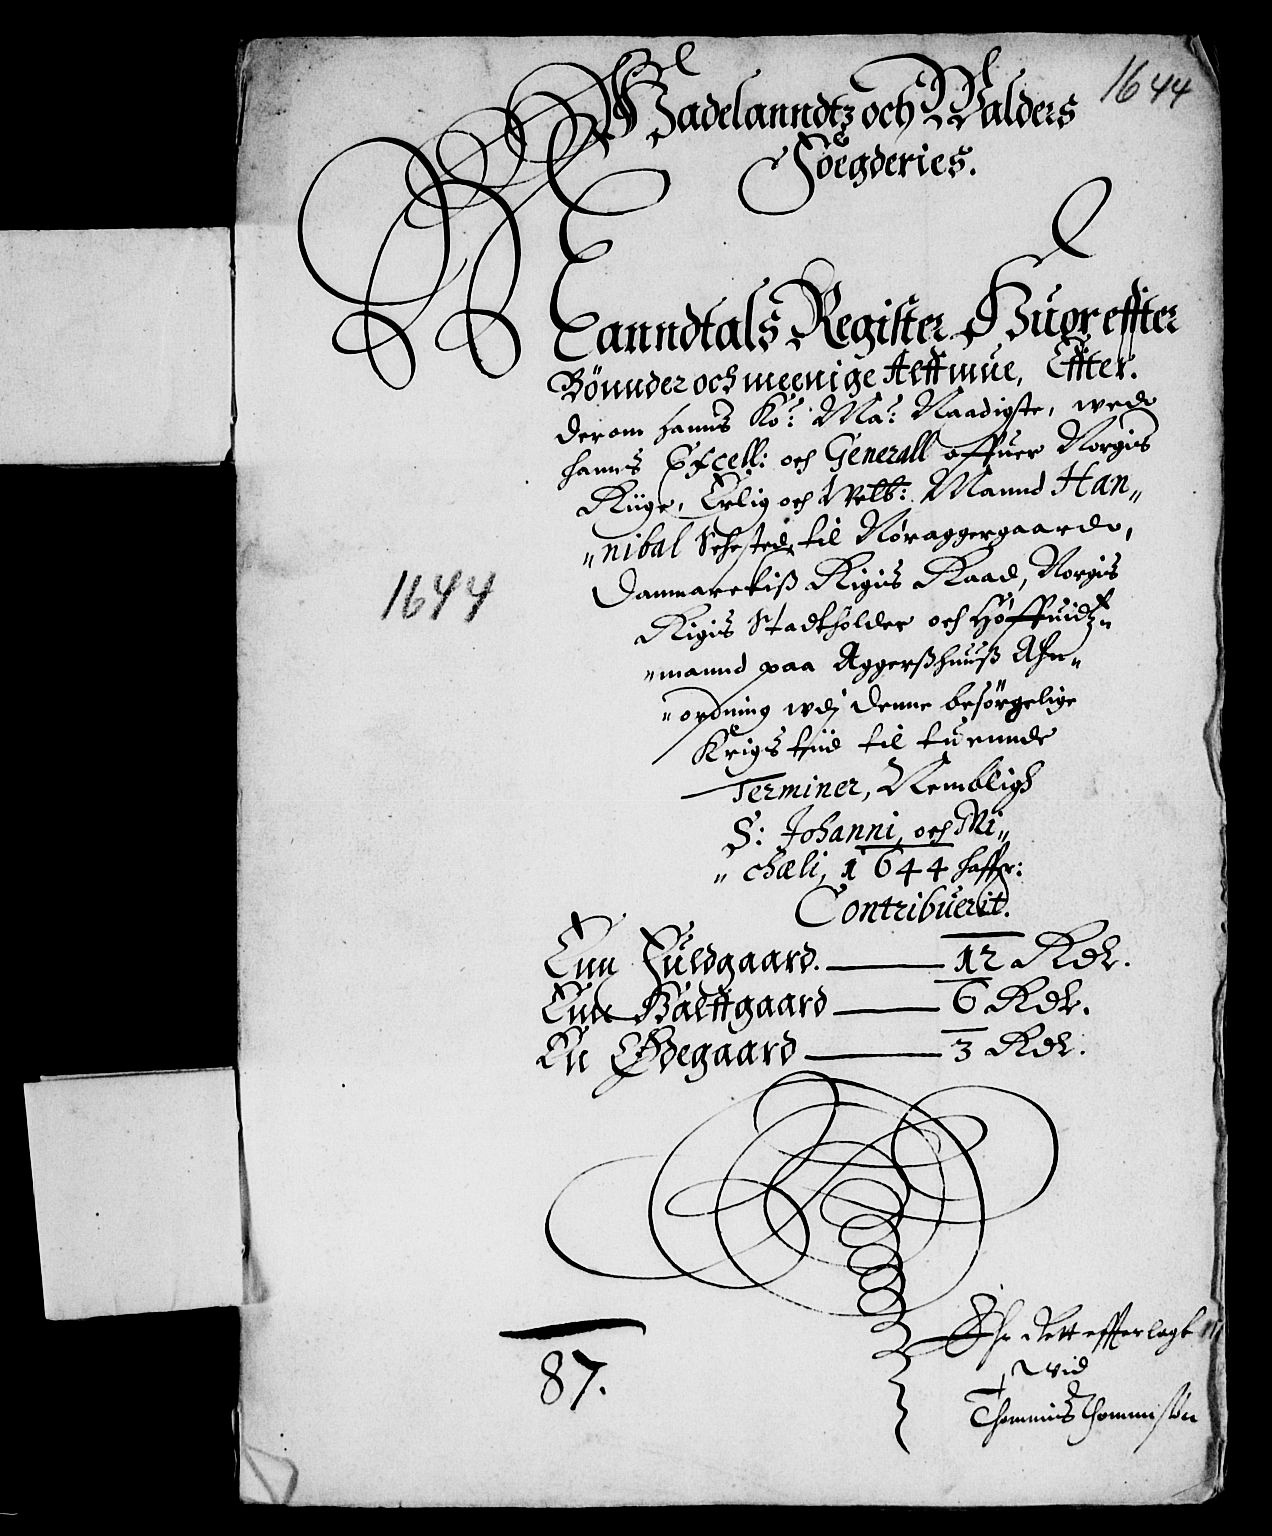 1644
Hadelanndtz och Walders
Foegderies.
Manndtals Register Huoreffter
Bønnder och meenige Allmue, Effter.
derom hanns Ko: Ma: Naadigste, wed
hanns Excell: och Generall offuer Norgis
Riige, Erlig och Velb: Mannd Han„
„nibal Sehested, til Nøraggergaardt,
Danmarckiß Rigis Raad, Norgis
Rigis Stadtholder och Høffuidtz„
„mannd paa Aggerßhuuß Ahn„
„ordning udj denne besørgelige
Krigs tiid til tuennde
Terminer, Nembligh
S: Johanni, och Mi„
„chæli, 1644 haffr:
Contribuerit.
Enn Fuldgaard. — 12 Rdr.
Enn Halffgaard — 6 Rdr.
En Ødegaard — 3 Rdr.
1644
87.
Ehr Rett efferlagt
wid
Thommis Thommisßen